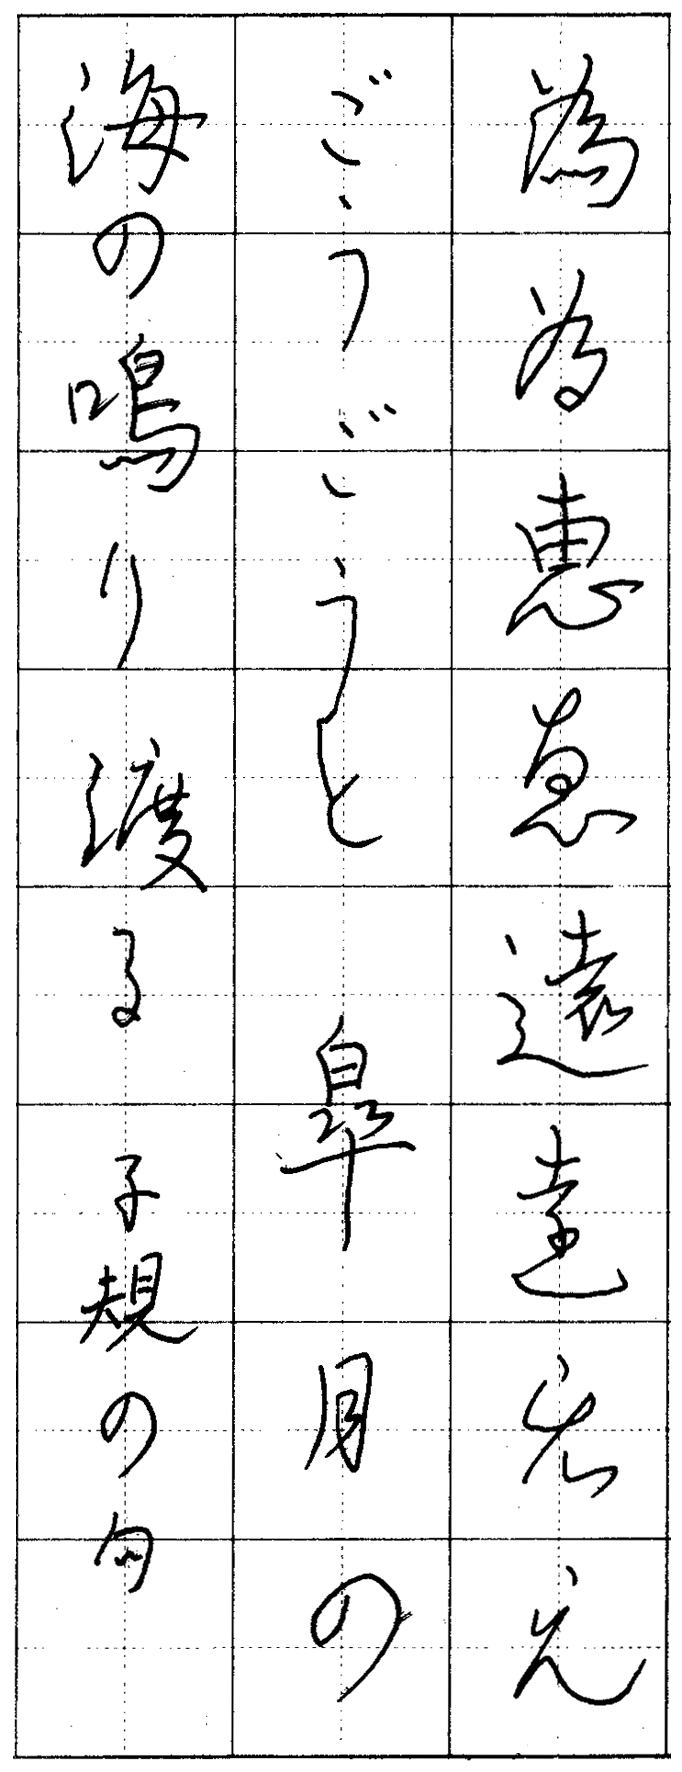 為ゐ恵ゑ遠を衣え
ごうごうと　皐月の
海の鳴り渡る　子規の句